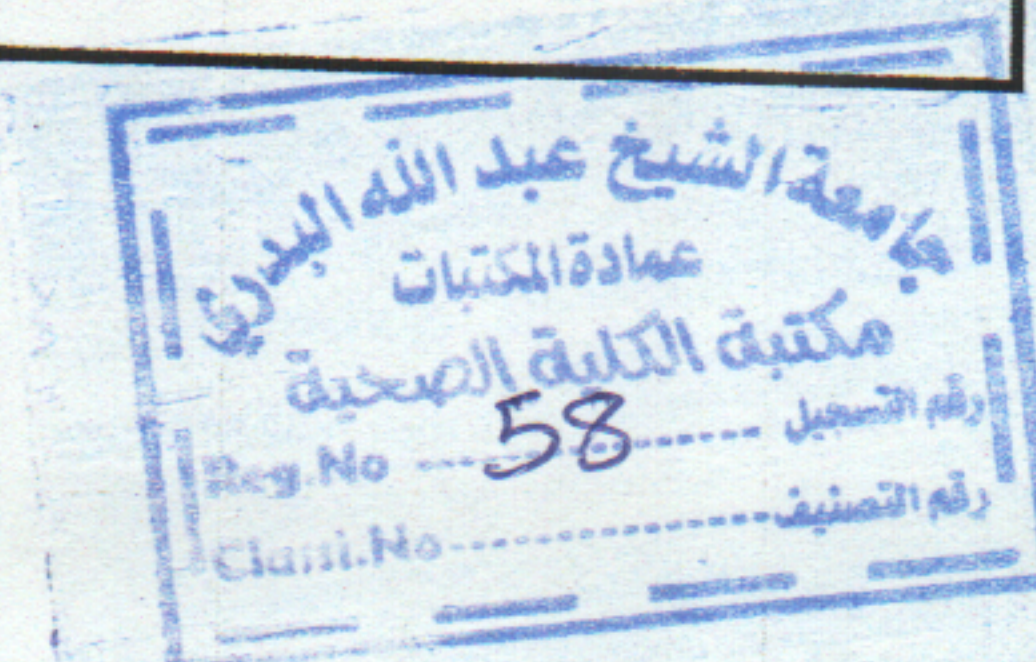 جامعة الشيخ عبد الله البدري
عمادة المكتبات
مكتبة الكلية الصحية
Reg.No ---- 58 ---- رقم التسجيل
Classi.No ---- رقم التصنيف